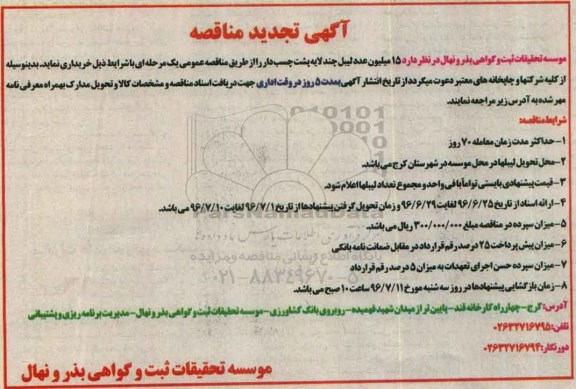 آگهی تجدید مناقصه
موسسه تحقیقات ثبت و گواهی بذر و نهال در نظر دارد ۱۵ میلیون عدد لیبل چند لایه پشت چسب دار را از طریق مناقصه عمومی یک مرحله ای با شرایط ذیل خریداری نماید. بدینوسیله
از کلیه شرکتها و چاپخانه های معتبر دعوت میگردد از تاریخ انتشار آگهی بمدت ۵ روز در وقت اداری جهت دریافت اسناد مناقصه و مشخصات کالا و تحویل مدارک بهمراه معرفی نامه
مهر شده به آدرس زیر مراجعه نمایند.
شرایط مناقصه:
۱- حداکثر مدت زمان معامله ۷۰ روز
۲- محل تحویل لیبلها در محل موسسه در شهرستان کرج می باشد.
۳- قیمت پیشنهادی بایستی تواماً با فی واحد و مجموع تعداد لیبلها اعلام شود.
۴- ارائه اسناد از تاریخ ۹۶/۶/۲۵ لغایت ۹۶/۶/۲۹ و زمان تحویل گرفتن پیشنهادها از تاریخ ۹۶/۷/۱ لغایت ۹۶/۷/۱۰ می باشد.
۵- میزان سپرده در مناقصه مبلغ ۳۰۰/۰۰۰/۰۰۰ ریال می باشد.
۶- میزان پیش پرداخت ۲۵ درصد رقم قرارداد در مقابل ضمانت نامه بانکی
۷- میزان سپرده حسن اجرای تعهدات به میزان ۵ درصد رقم قرارداد
۸- زمان بازگشایی پیشنهادها در روز سه شنبه مورخ ۹۶/۷/۱۱ ساعت ۱۰ صبح می باشد.
آدرس: کرج- چهارراه کارخانه قند- پایین تر از میدان شهید فهمیده- روبروی بانک کشاورزی- موسسه تحقیقات ثبت و گواهی بذر و نهال- مدیریت برنامه ریزی و پشتیبانی
تلفن: ۰۲۶۳۲۷۱۶۷۹۵
دورنگار: ۰۲۶۳۲۷۱۶۷۹۴
موسسه تحقیقات ثبت و گواهی بذر و نهال
ParsNamadData
پایگاه اطلاع رسانی مناقصه و مزایده
۰۲۱-۸۸۳۴۹۶۷۰-۵